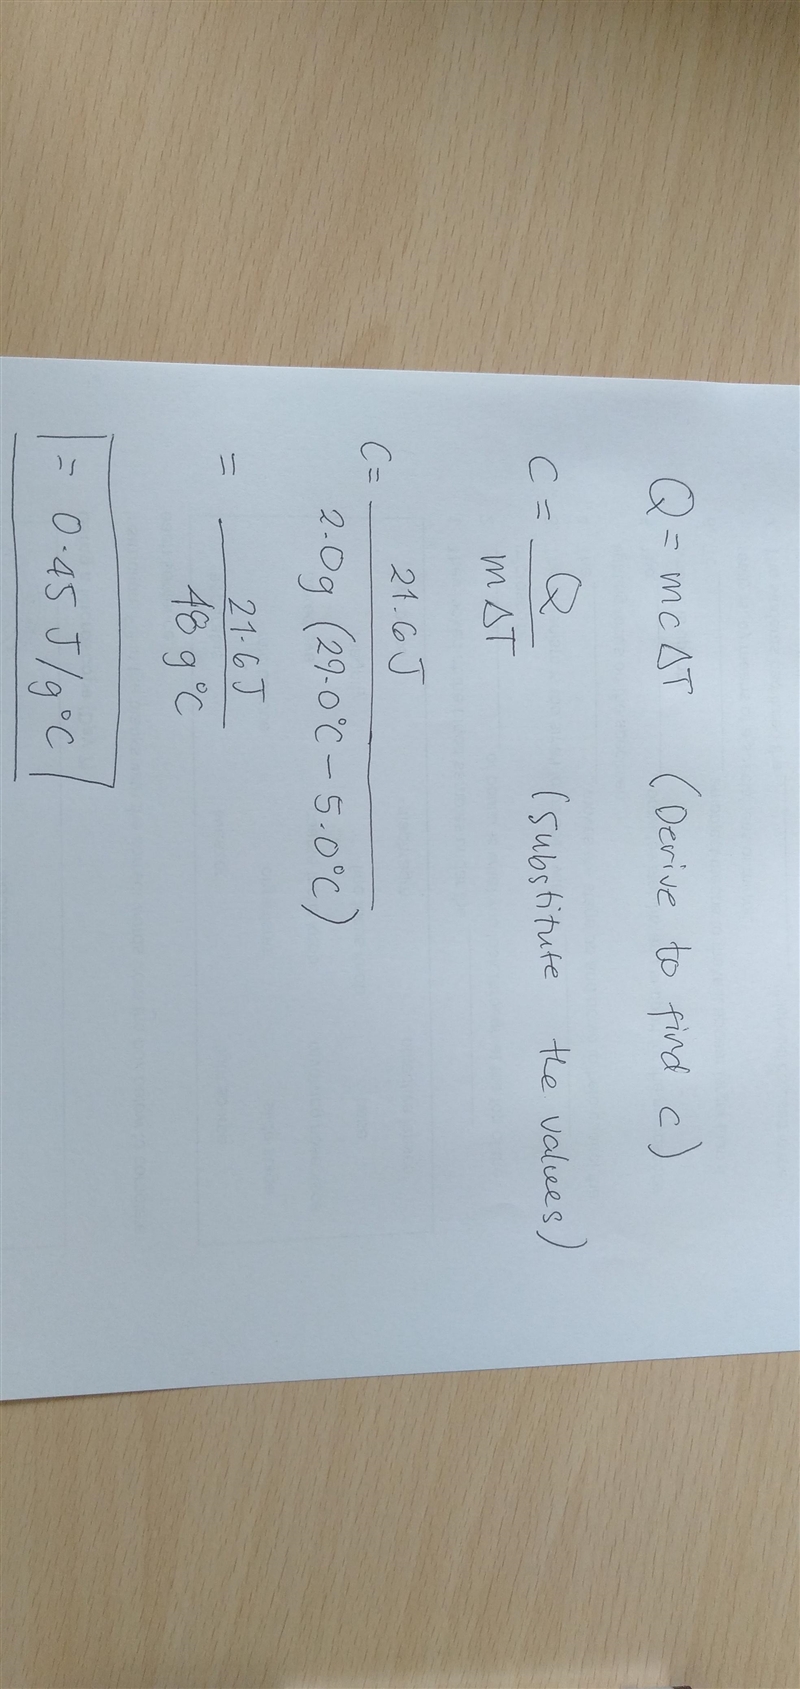 Q = mcΔT (Derive to find c)
C = Q / mΔT (substitute the values)
C = 21.6J / 2.0g (29.0°C - 5.0°C)
= 21.6J / 48 g°C
= 0.45 J/g°C